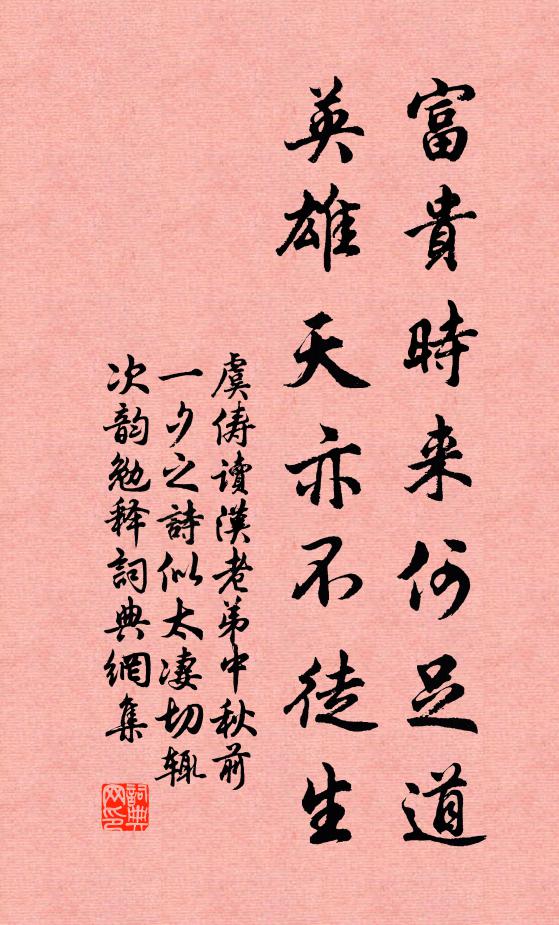 富貴時来何足道
英雄天亦不徒生
虞俦讀漢老弟中秋前
一夕之詩似太凄切辄
次韵勉释詞典網集
詞典
网印